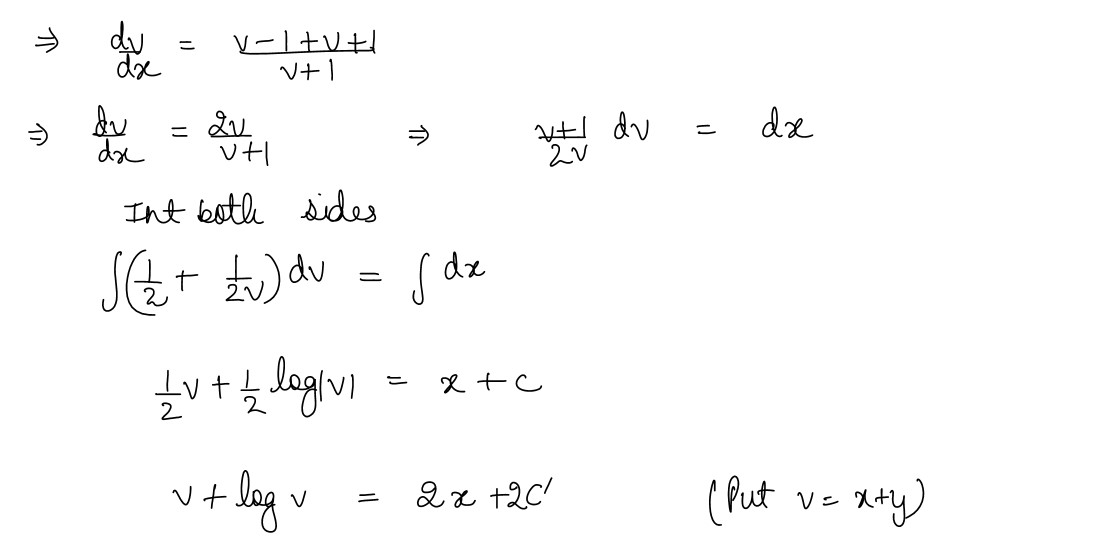 ⇒ dv/dx = (v-1+v+1)/(v+1)
⇒ dv/dx = 2v/(v+1) ⇒ (v+1)/2v dv = dx
Int both sides
∫(1/2 + 1/2v) dv = ∫ dx
1/2 v + 1/2 log|v| = x + c
v + log v = 2x + 2C' (Put v = x+y)